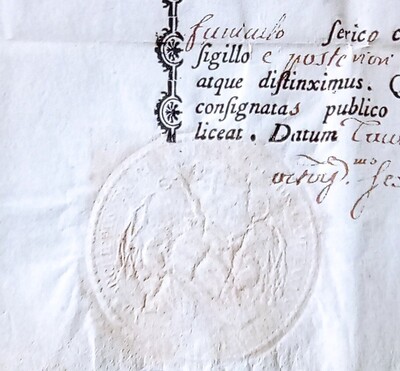 funiculo serico c
sigillo e posteriori
atque distinximus. Q
consignatas publico
liceat. Datum Tau